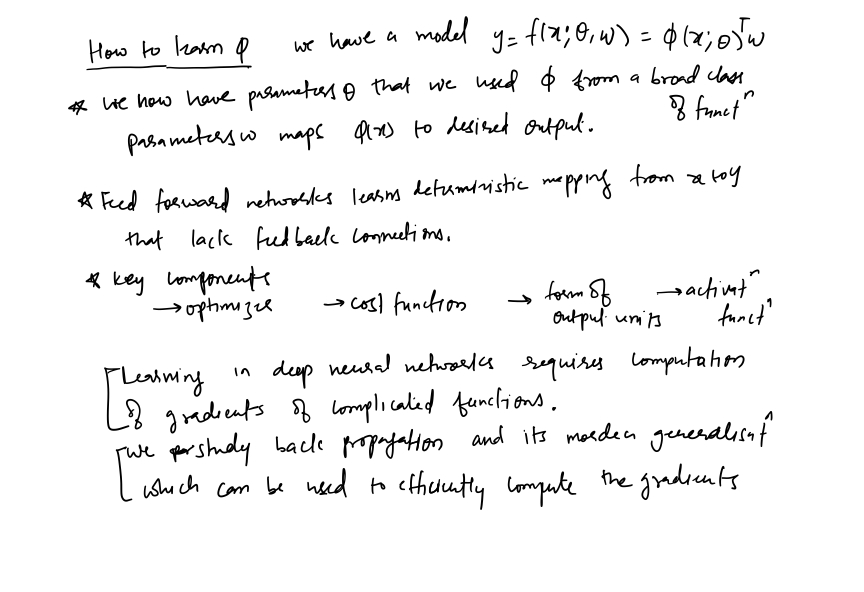 How to learn φ we have a model y = f(x; θ, w) = φ(x; θ)ᵀw
* we now have parameters θ that we used φ from a broad class of functⁿ
parameters w maps φ(x) to desired output.
* Feed forward networks learns deterministic mapping from x to y
that lack feedback connections.
* Key components
→ optimizer → cost function → form of output units → activatⁿ functⁿ
Learning in deep neural networks requires computation
of gradients of complicated functions.
we study back propagation and its morden generalisatⁿ
which can be used to efficiently compute the gradients